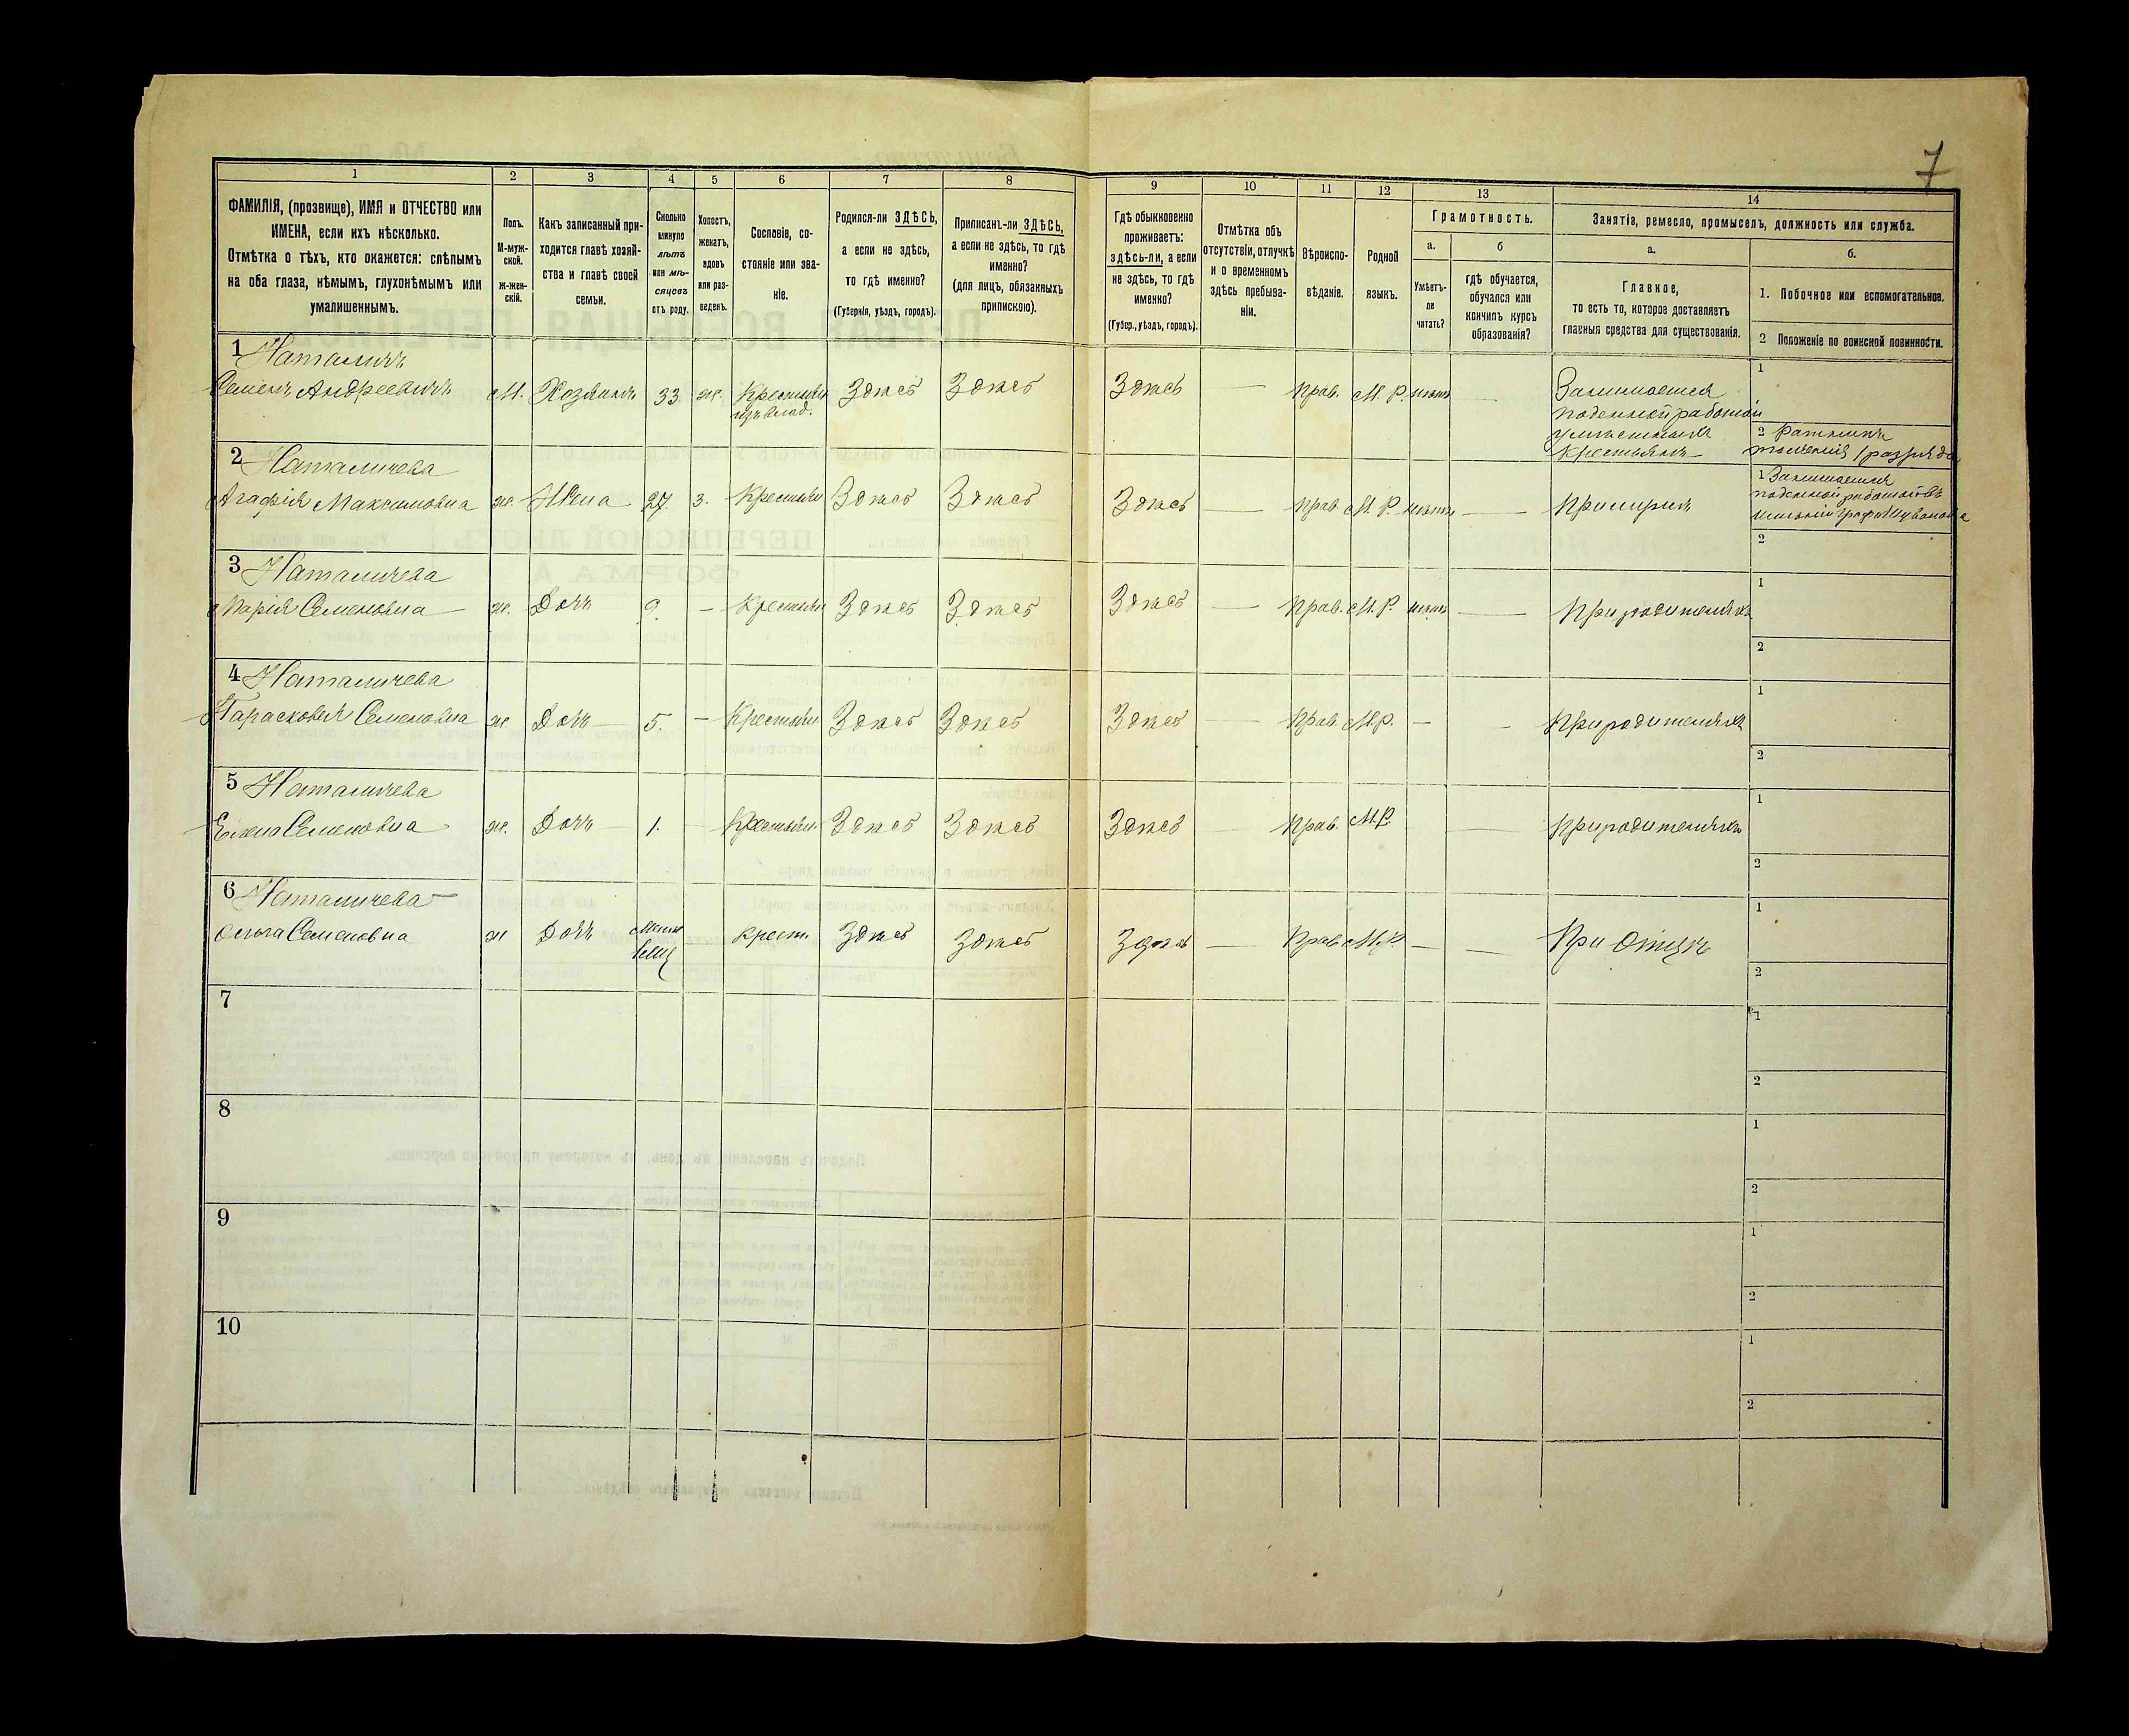 7
1 2 3 4 5 6 7 8 9 10 11 12 13 14
ФАМИЛІЯ, (прозвище), ИМЯ и ОТЧЕСТВО или
ИМЕНА, если ихъ нѣсколько.
Отмѣтка о тѣхъ, кто окажется: слѣпымъ
на оба глаза, нѣмымъ, глухонѣмымъ или
умалишеннымъ.
Полъ.
М-муж-
ской.
ж-жен-
скій.
Какъ записанный при-
ходится главѣ хозяй-
ства и главѣ своей
семьи.
Сколько
минуло
лѣтъ
или мѣ-
сяцевъ
отъ роду.
Холостъ,
женатъ,
вдовъ
или раз-
веденъ.
Сословіе, со-
стояніе или зва-
ніе.
Родился-ли ЗДѢСЬ,
а если не здѣсь,
то гдѣ именно?
(Губернія, уѣздъ, городъ).
Приписанъ-ли ЗДѢСЬ,
а если не здѣсь, то гдѣ
именно?
(для лицъ, обязанныхъ
припискою).
Гдѣ обыкновенно
проживаетъ:
здѣсь-ли, а если
не здѣсь, то гдѣ
именно?
(Губер., уѣздъ, городъ).
Отмѣтка объ
отсутствіи, отлучкѣ
и о временномъ
здѣсь пребыва-
ніи.
Вѣроиспо-
вѣданіе.
Родной
языкъ.
Грамотность.
а.
Умѣетъ-
ли
читать?
б
гдѣ обучается,
обучался или
кончилъ курсъ
образованія?
Занятіе, ремесло, промыселъ, должность или служба.
а.
Главное,
то есть то, которое доставляетъ
главныя средства для существованія.
б.
1. Побочное или вспомогательное.
2 Положеніе по воинской повинности.
1
Семенъ Андреевичъ М. Хозяинъ 33. ж. Крестьян. Здѣсь Здѣсь Здѣсь — Прав. М. Р. нѣтъ —
изъ влад.
Занимается
поденной работой
у мѣстныхъ
крестьянъ
1
2 Ратникъ
ополченія 1 разряда
2 Наталичева
Агафія Максимовна ж. Жена 27. з. Крестьян Здѣсь Здѣсь Здѣсь — Прав. М. Р. нѣтъ — При мужѣ
1 Занимается
поденной работой въ
2
3 Наталичева
Марія Семеновна ж. Дочь 9. — Крестьян Здѣсь Здѣсь Здѣсь — Прав. М. Р. нѣтъ — При родителяхъ
1
2
4 Наталичева
Парасковія Семеновна ж Дочь 5. — Крестьян. Здѣсь Здѣсь Здѣсь — Прав М. Р. — — При родителяхъ
1
2
5 Наталичева
Елена Семеновна ж. Дочь 1. — Крестьян. Здѣсь Здѣсь Здѣсь — Прав. М. Р. — При родителяхъ
1
2
6 Наталичева
Ольга Семеновна ж Дочь — крест. Здѣсь Здѣсь Здѣсь — Прав М. Р — — При отцѣ
1
2
7
1
2
8
1
2
9
1
2
10
1
2